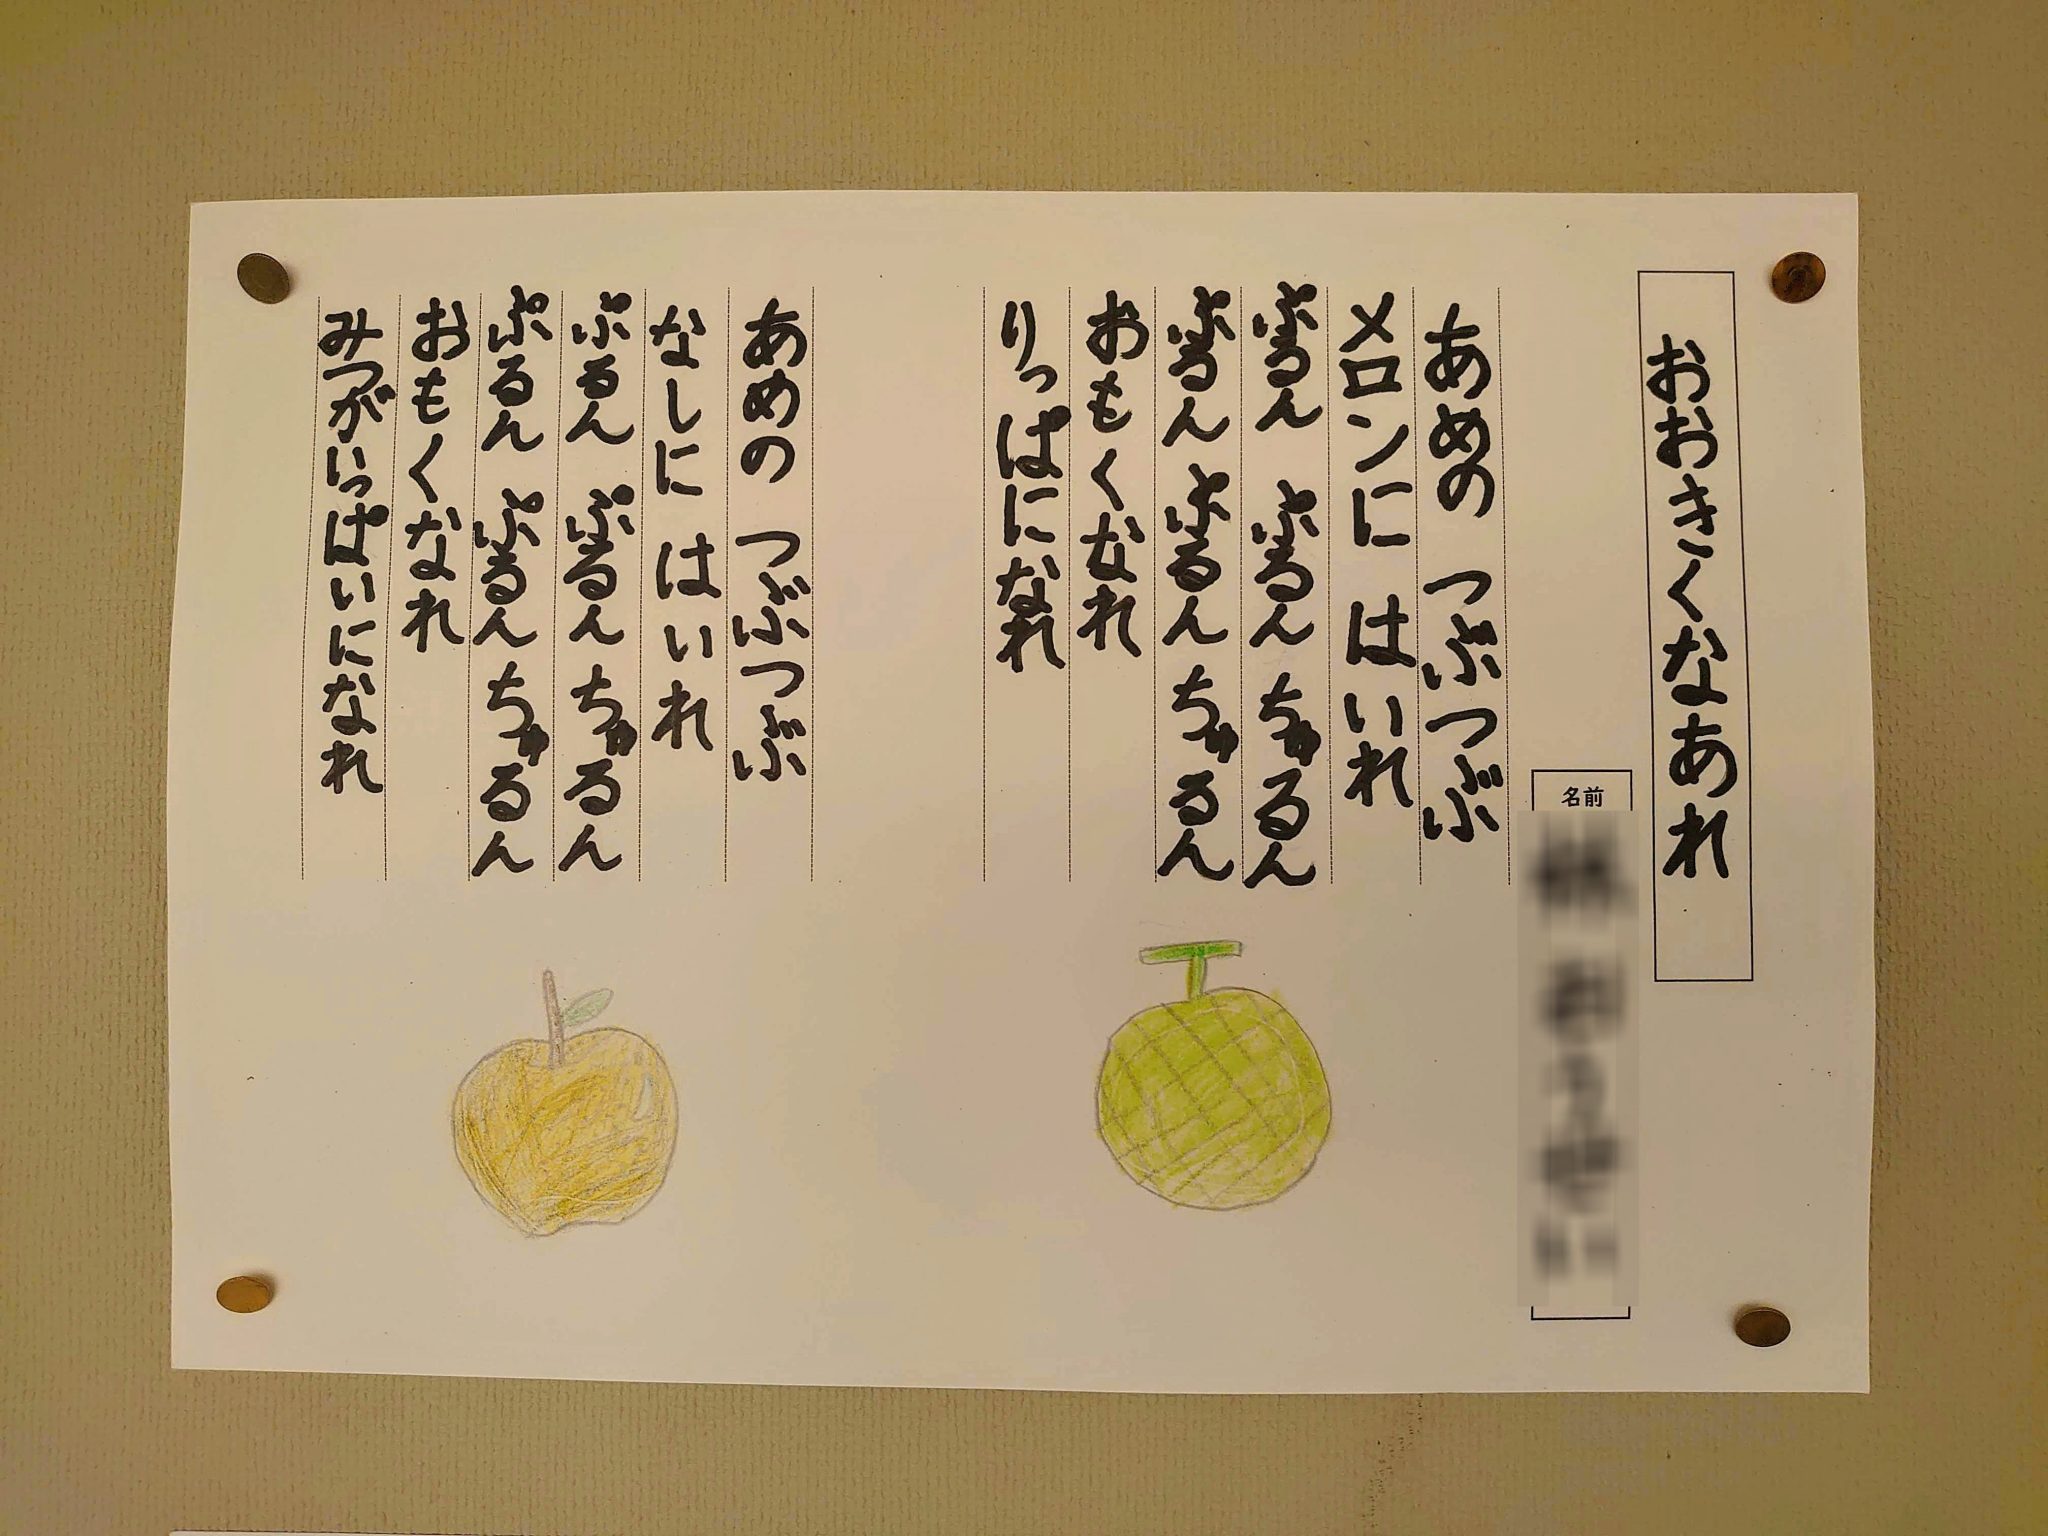 おおきくなあれ
名前
あめの つぶつぶ
メロンに はいれ
ぷるん ぷるん ちゅるん
ぷるん ぷるん ちゅるん
おもくなれ
りっぱになれ
あめの つぶつぶ
なしに はいれ
ぷるん ぷるん ちゅるん
ぷるん ぷるん ちゅるん
おもくなれ
みつがいっぱいになれ